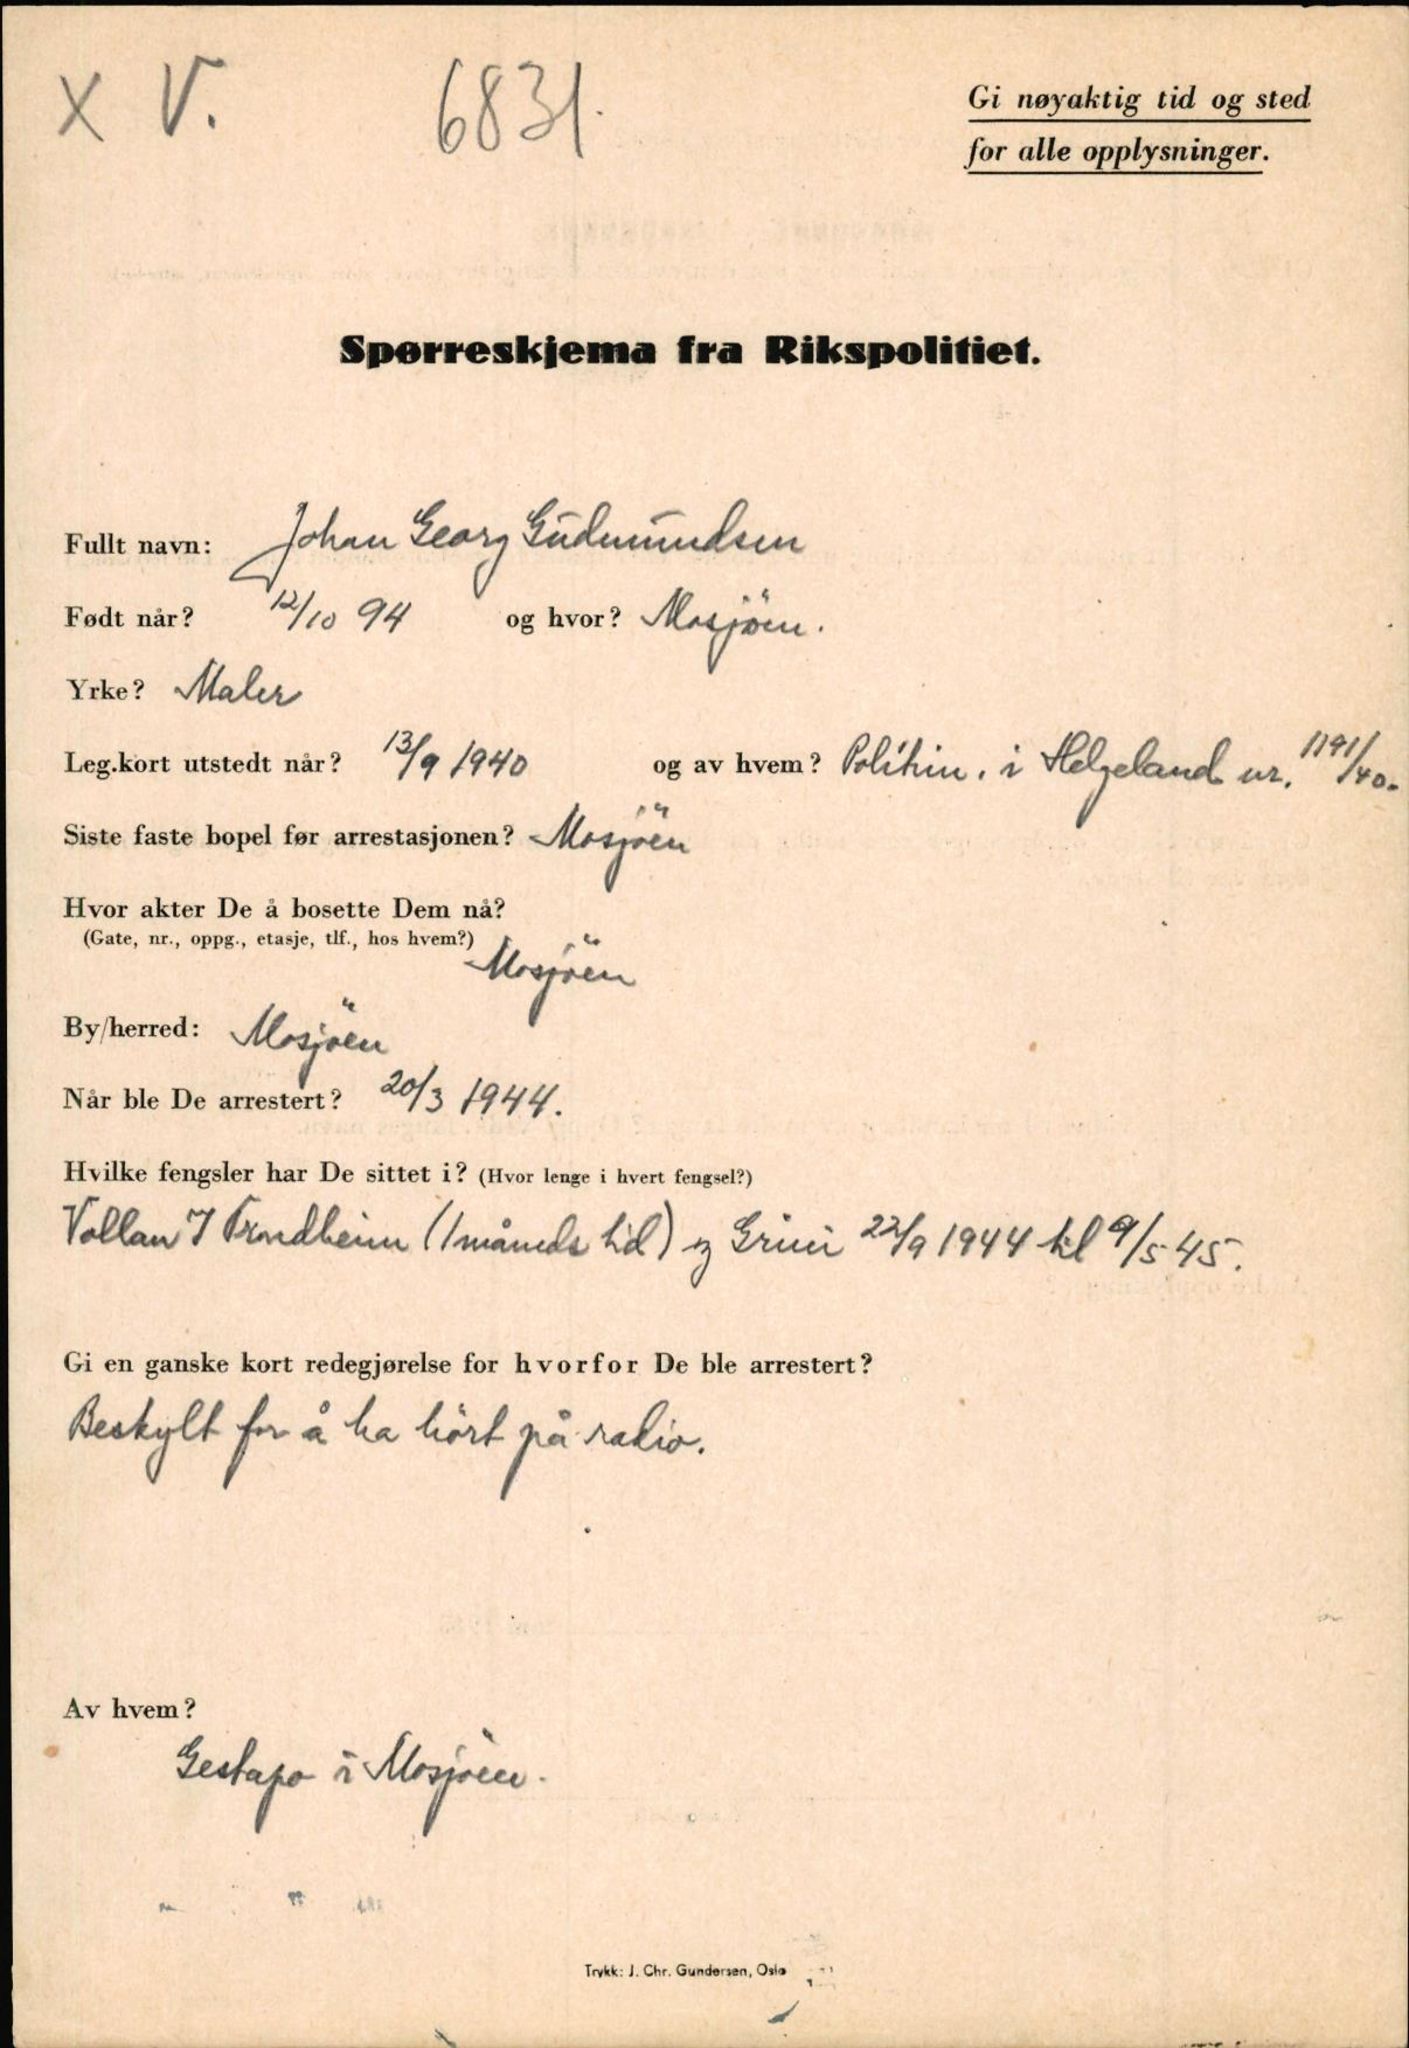 X V. 6831.
Gi nøyaktig tid og sted
for alle opplysninger.
Spørreskjema fra Rikspolitiet.
Fullt navn: Johan Georg Gudmundsen
Født når? 12/10 94 og hvor? Mosjöen.
Yrke? Maler
Leg.kort utstedt når? 13/9 1940 og av hvem? Politim. i Helgeland nr. 1191/40.
Siste faste bopel før arrestasjonen? Mosjöen
Hvor akter De å bosette Dem nå?
(Gate, nr., oppg., etasje, tlf., hos hvem?)
Mosjöen
By/herred: Mosjöen
Når ble De arrestert? 20/3 1944.
Hvilke fengsler har De sittet i? (Hvor lenge i hvert fengsel?)
Vollan I Trondheim (1 måneds tid) og Grini 22/9 1944 til 9/5 45.
Gi en ganske kort redegjørelse for hvorfor De ble arrestert?
Beskylt for å ha hört på radio.
Av hvem?
Gestapo i Mosjöen.
Trykk: J. Chr. Gundersen, Oslo